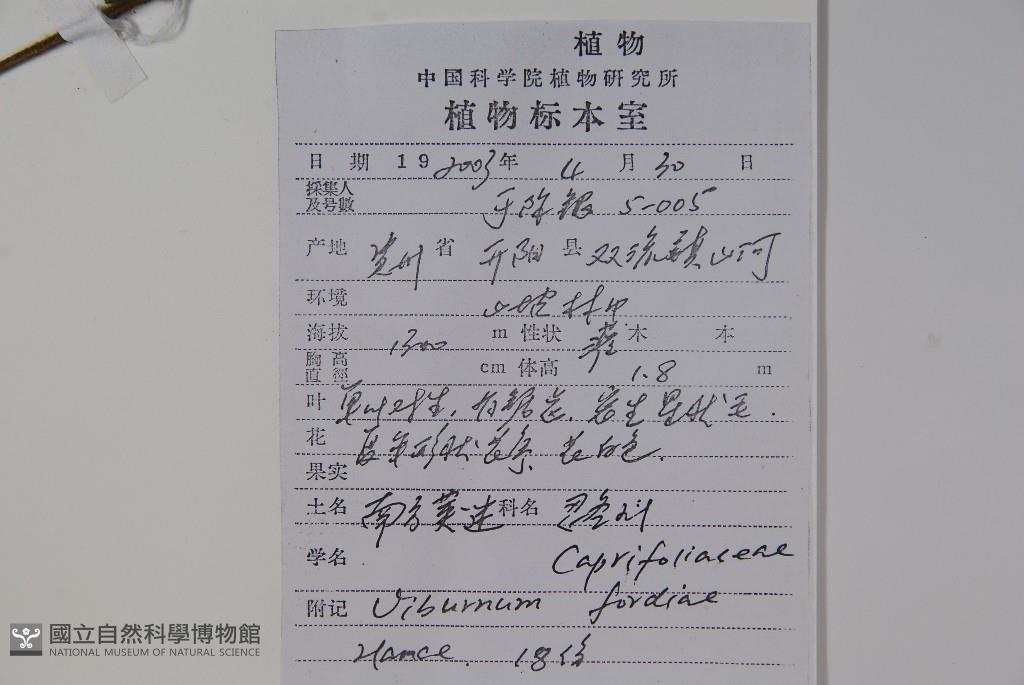 植物
中国科学院植物研究所
植物标本室
日期 19 2003年 4 月 30 日
採集人
及号數 5-005
产地 贵州省 开阳县 双流镇山河
环境 山坡林中
海拔 1300 m 性状 灌木 本
胸高
直徑 cm 体高 1.8 m
叶 单叶对生,有锯齿,密生星状毛.
花 花序 花白色.
果实
土名 南方荚迷 科名 忍冬科
学名 Caprifoliaceae
附记 Viburnum fordiae
Hance. 18份
國立自然科學博物館
NATIONAL MUSEUM OF NATURAL SCIENCE